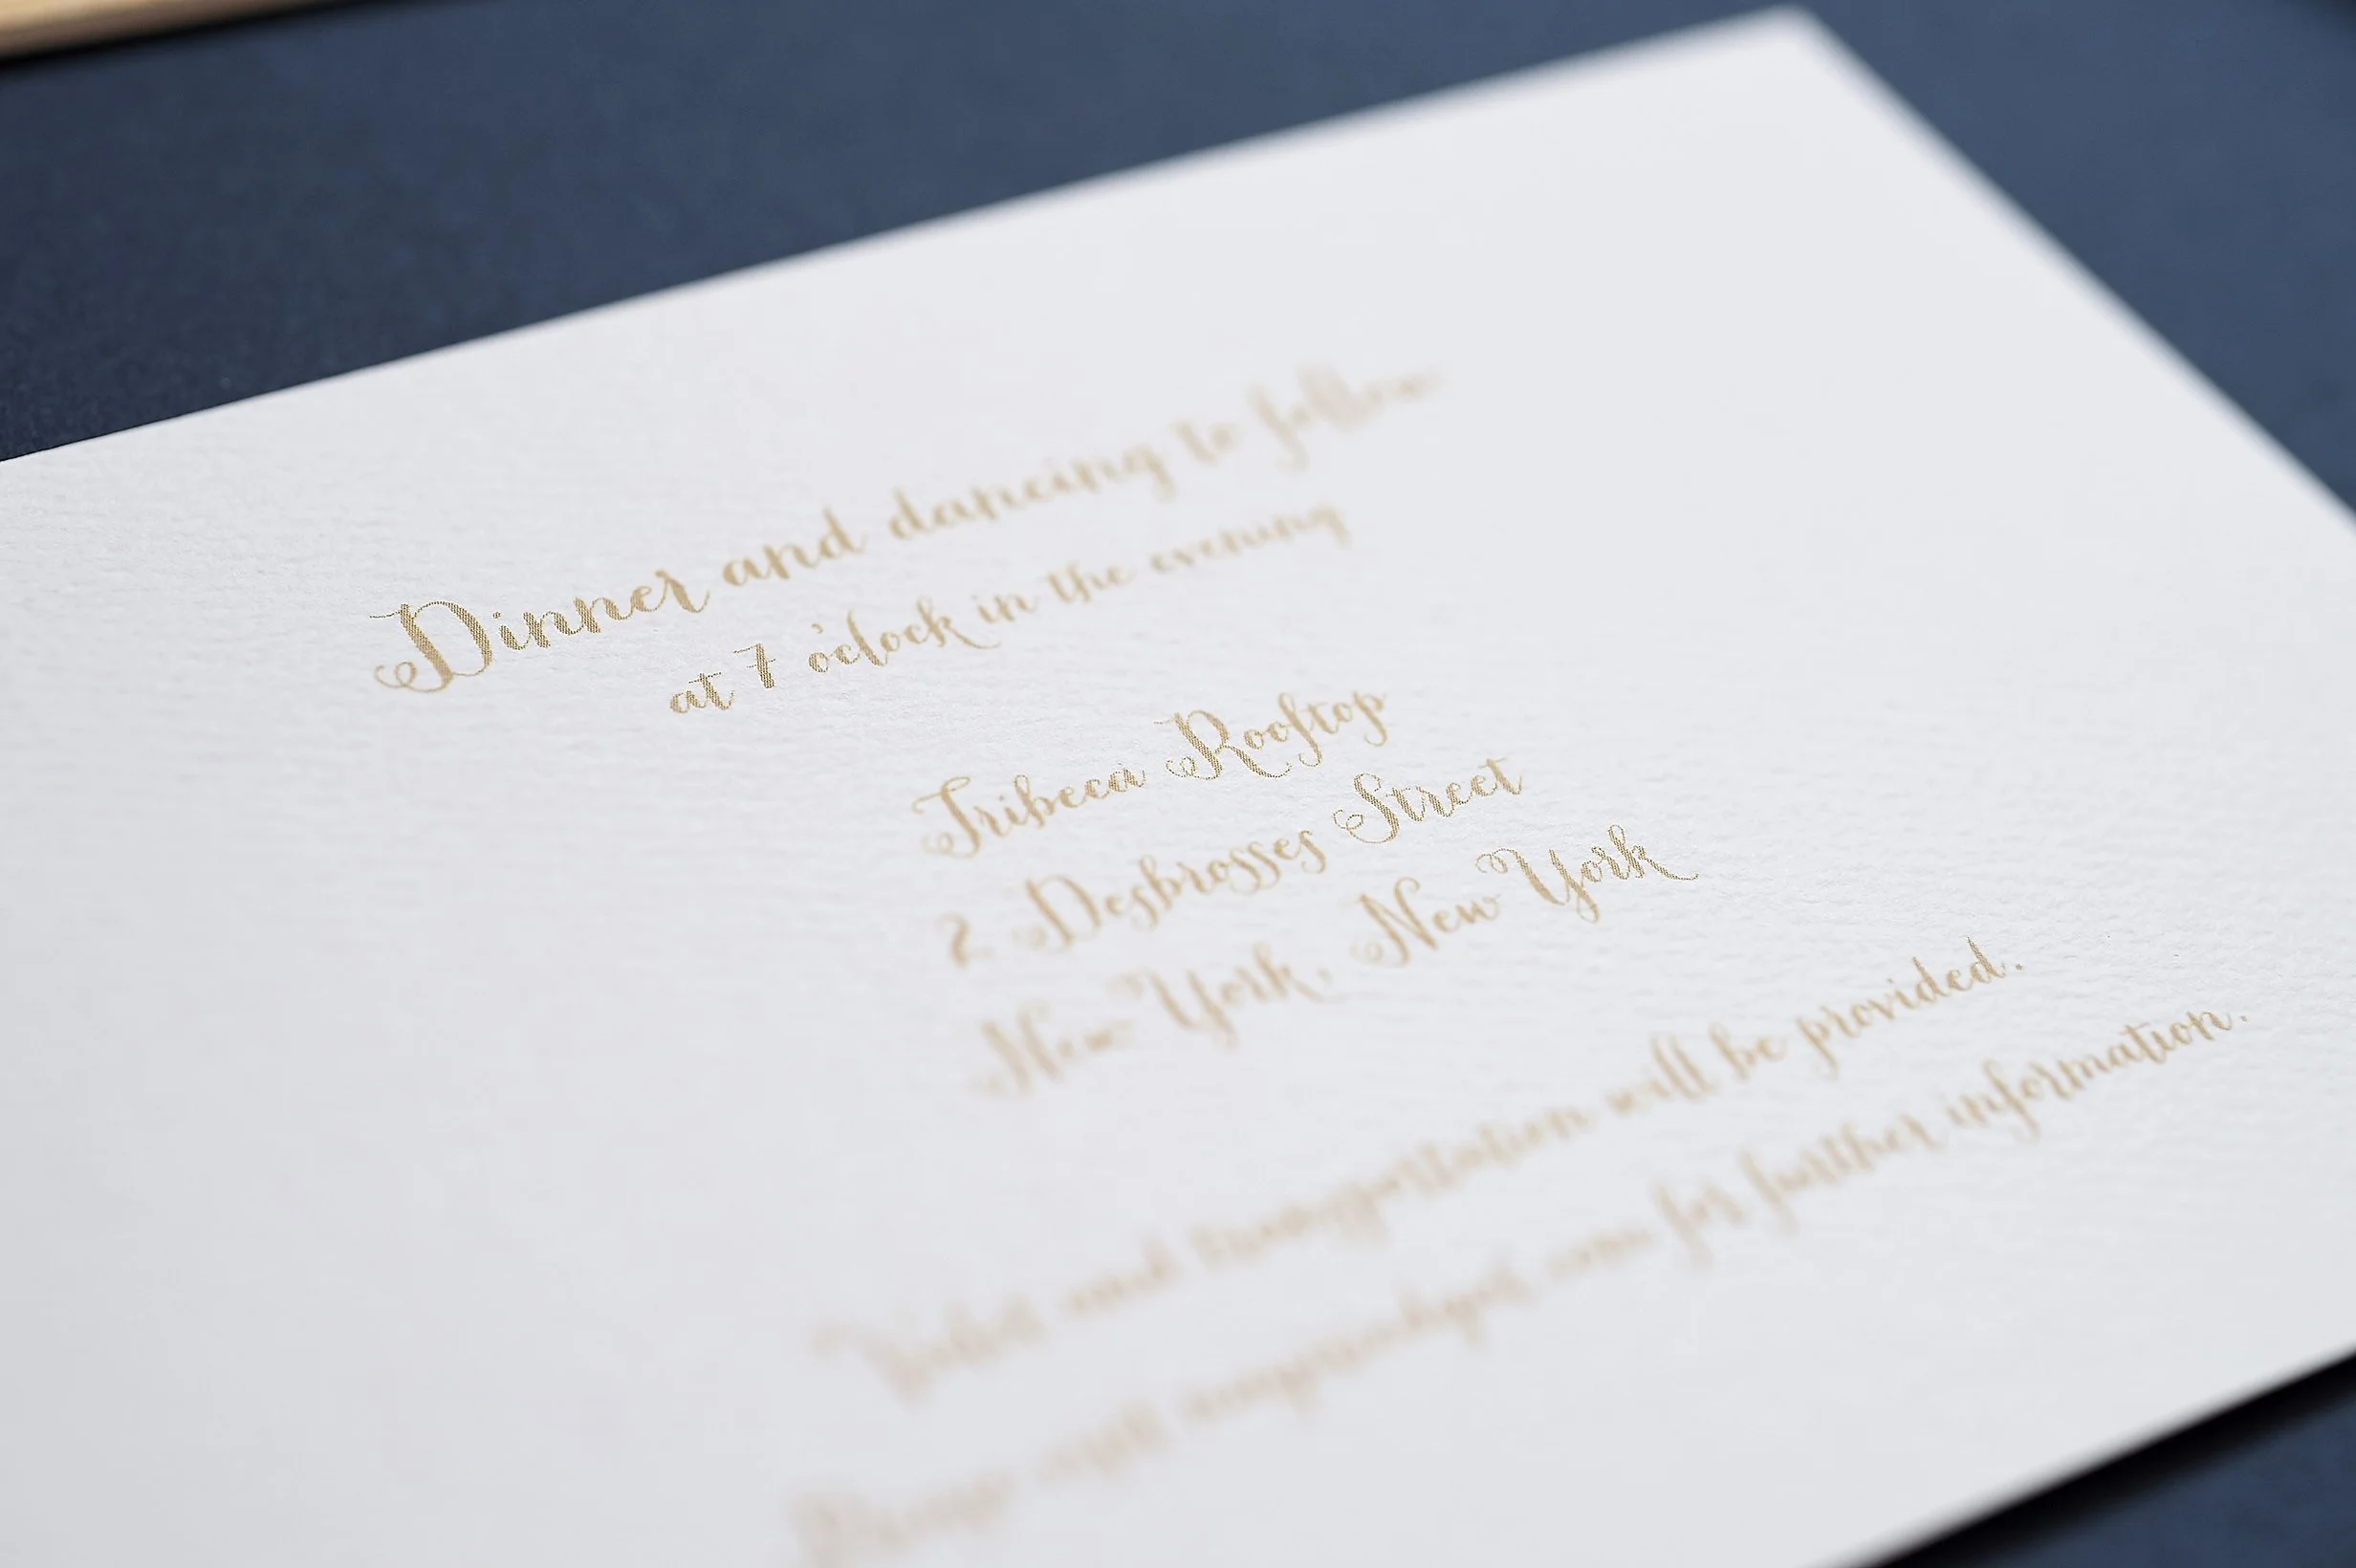 Dinner and dancing to follow
at 7 o'clock in the evening
Tribeca Rooftop
2 Desbrosses Street
New York, New York
and transportation will be provided.
for further information.